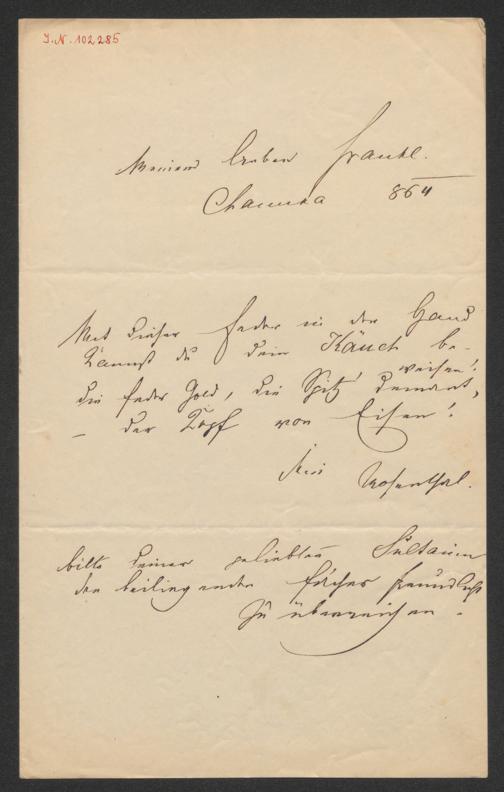 I.N. 102285
Meinem lieben Frankl.
Chanuka 864
Mit dieser Feder in der Hand
Kannst du dein Käuch be-
weisen!
die Feder Gold, die Spitz' Demant,
– der Kopf von Eisen!
Dein Rosenthal.
bitte deiner geliebten Sultanin
den beiliegenden Fächer freundlichst
zu überreichen.